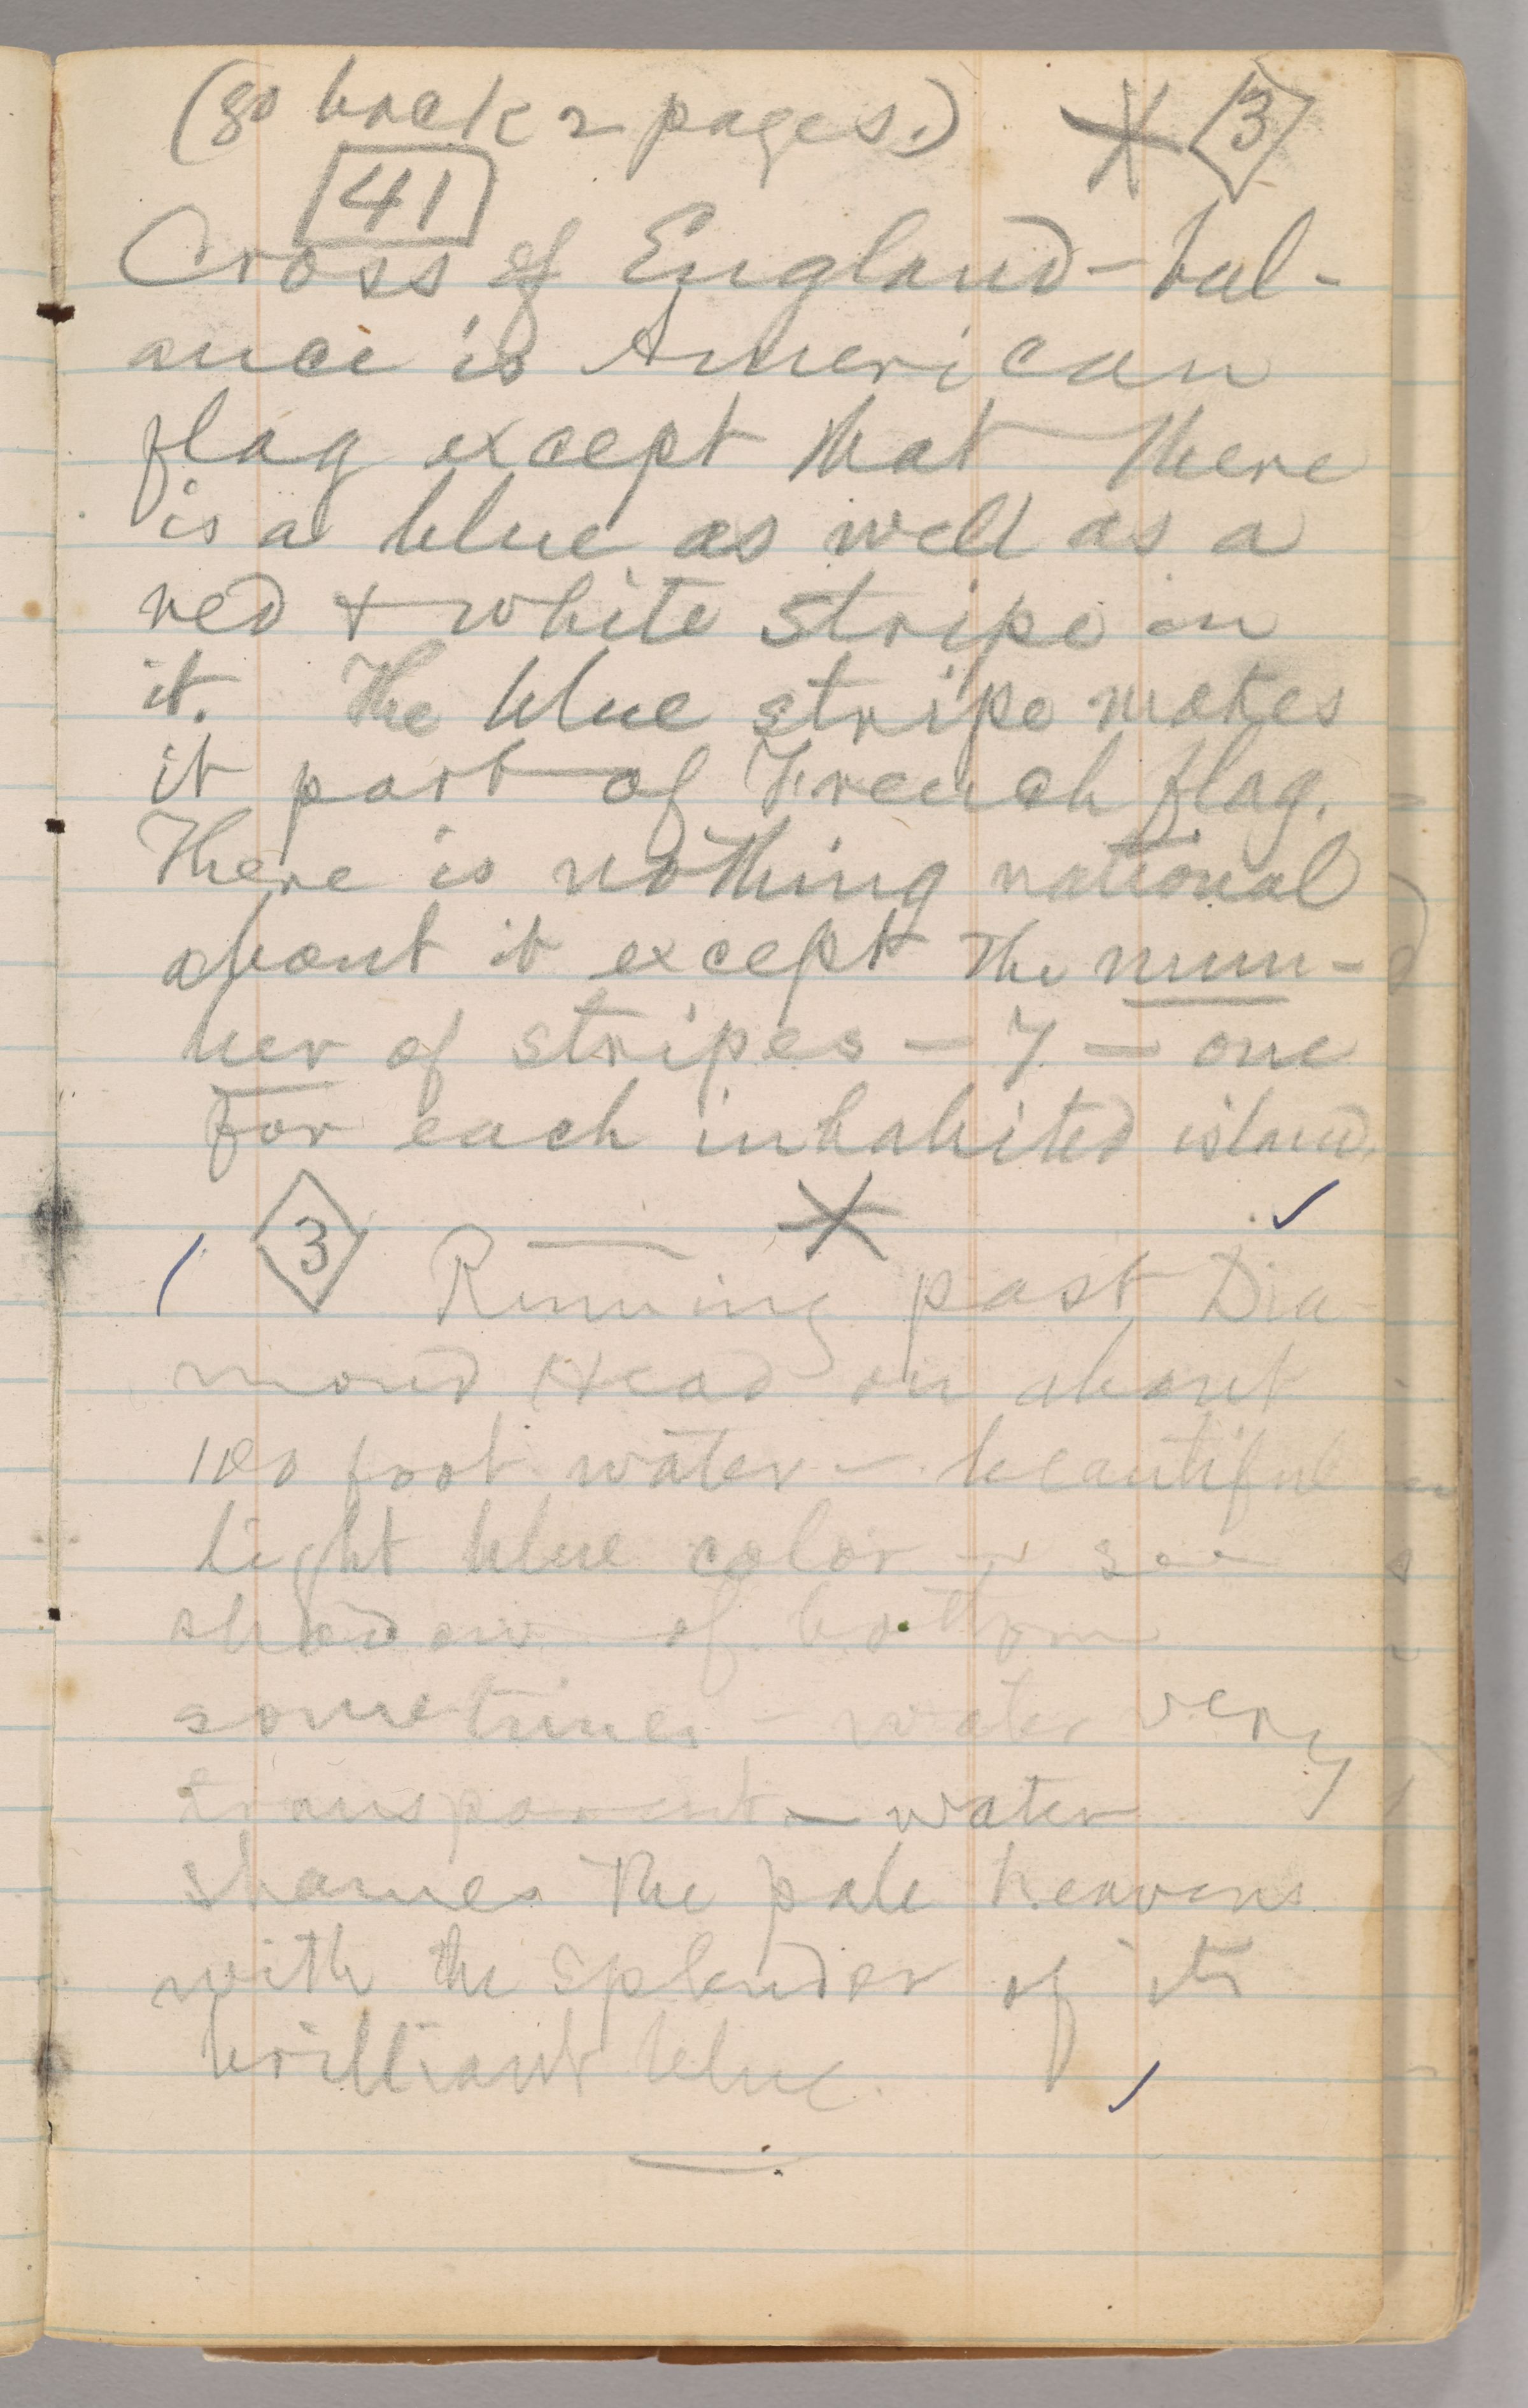 (go back 2 pages.) 3
41
Cross of England — bal-
ance is American
flag except that there
is a blue as well as a
red & white stripe in
it. The blue stripe makes
it part of French flag.
There is nothing national
about it except the num-
ber of stripes — 7 — one
for each inhabited island.
3 Running past Dia-
mond Head in about
100 foot water — beautiful
light blue color — see
shadow of bottom
sometimes — water very
transparent — water
shames the pale heavens
with the splendor of its
brilliant blue.